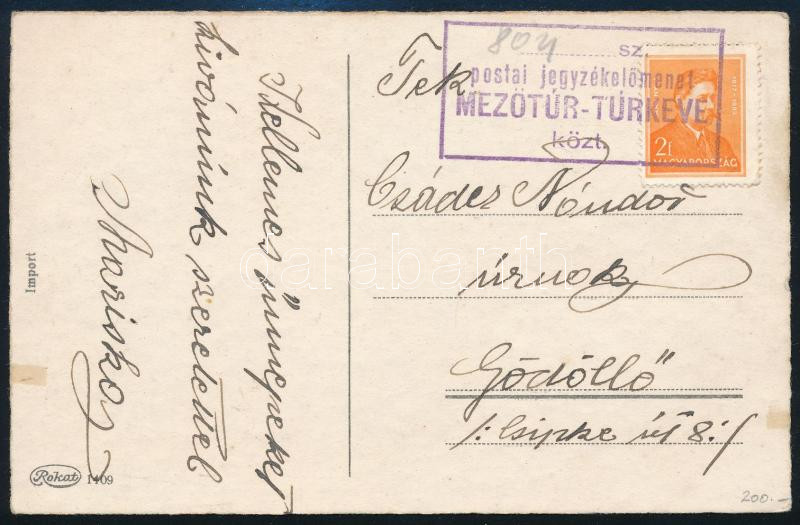 804 sz.
postai jegyzékelőmenet
MEZŐTÚR-TÚRKEVE
közt.
2f
MAGYARORSZÁG
Tek
Nándor
úrnak
Gödöllő
/: Csipke út 8 :/
Kellemes ünnepeket
kivánunk szeretettel
Mariska
Import
Rokat 1409
darabanth
200.-